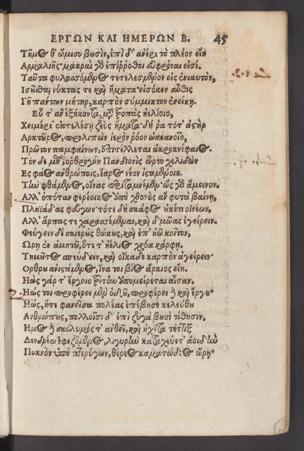 ΕΡΓΩΝ ΚΑΙ ΗΜΕΡΩΝ Β. 45
Τῆμος θ' ὥμισυ βουσὶν, ἐπὶ δ' ἀνέρι τὸ πλέον εἴη
Ἁρμαλιῆς· μακραὶ γὰρ ἐπίῤῥοθοι εὐφρόναι εἰσί.
Ταῦτα φυλασσόμενος τετελεσμένον εἰς ἐνιαυτὸν,
Ἰσοῦσθαι νύκτας τε καὶ ἤματα· εἰσόκεν αὖθις
Γῆ πάντων μήτηρ, καρπὸν σύμμικτον ἐνείκῃ.
Εὖ τ' ἂν ἑξήκοντα μετὰ τροπὰς ἠελίοιο,
Χειμέρι' ἐκτελέσῃ ζεὺς ἤματα· δή ῥα τότ' ἀστὴρ
Ἀρκτοῦρος, προλιπὼν ἱερὸν ῥόον ὠκεανοῖο,
Πρῶτον παμφαίνων, ἐπιτέλλεται ἀκροκνέφαιος.
Τὸν δὲ μετ' ὀρθρογόη Πανδιονὶς ὦρτο χελιδὼν
Ἐς φάος ἀνθρώποις, ἔαρος νέον ἱσταμένοιο.
Τὴν φθάμενος, οἴνας περιταμνέμεν· ὣς γὰρ ἄμεινον.
Ἀλλ' ὁπόταν φερέοικος ἀπὸ χθονὸς ἂμ φυτὰ βαίνῃ,
Πληϊάδας φεύγων· τότε δὴ σκάφος οὐκέτι οἰνέων,
Ἀλλ' ἅρπας τε χαρασσέμεναι, καὶ δμῶας ἐγείρειν.
Φεύγειν δὲ σκιεροὺς θώκους, καὶ ἐπ' ἠῶ κοῖτον,
Ὥρῃ ἐν ἀμητοῦ, ὅτε τ' ἠέλιος χρόα κάρφει.
Τημοῦτος σπεύδειν, καὶ οἴκαδε καρπὸν ἀγείρειν
Ὄρθρου ἀνιστάμενος, ἵνα τοι βίος ἄρκιος εἴη.
Ἠὼς γάρ τ' ἔργοιο τρίτην ἀπομείρεται αἶσαν.
Ἠώς τοι προφέρει μὲν ὁδοῦ, προφέρει δὲ καὶ ἔργου·
Ἠὼς, ἥτε φανεῖσα πολέας ἐπέβησε κελεύθου
Ἀνθρώπους, πολλοῖσι δ' ἐπὶ ζυγὰ βουσὶ τίθησιν.
Ἦμος δὲ σκόλυμός τ' ἀνθεῖ, καὶ ἠχέτα τέττιξ
Δενδρέῳ ἐφεζόμενος, λιγυρὴν καταχεύετ' ἀοιδὴν
Πυκνὸν ὑπὸ πτερύγων, θέρεος καματώδεος ὥρῃ·